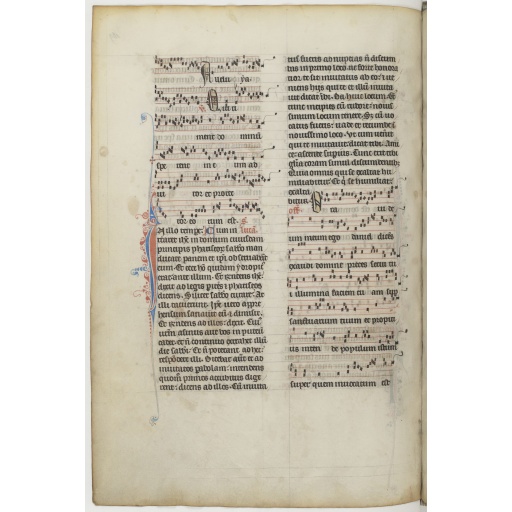 lleluya
Qui ti
ment do minu
spe rent in e um ad
iu
tor et protec
tor eo rum est. S.
n illo tempr: Cum in lucā
traret ihc in domum cuiusdam
principis phariseoꝝ sabbo man
ducare panem et ipsi obseruabāt
eum. Et ecce hō quidam ydropic
erat ante illum. Et rñdens ihc
dixit ad legis pitos et phariseos
dicens. Si licet sabbo curare. At
illi tacuerunt. Ipse uero appre
hensum sanauit eum et dimisit.
Et rñdens ad illos: dixit. Cui
urm asinus aut bos in puteū
cadet: et nō continuo extrahet illum
die sabbi. Et nō poterant ad hec:
respōdere illi. Dicebat aut et ad
inuitatos pabolam: intendens
quomō primos accubitus elige
rent: dicens ad illos. Cū inuita
tus fueris ad nuptias nō discum
bas in primo loco: ne forte honora
tior te sit inuitatus ab eo: et ue
niens hijs qui te et illum inuita
uit dicat tibi. Da huic locum. Et
tunc incipies cū rubore: nouis
simum locum tenere. Sed cū uo
catus fueris: uade et recumbe ī
nouissimo loco. Ut cum uenerit
qui te inuitauit: dicat tibi. Ami
ce: ascende supius. Tunc erit tibi
gliā coram simul discumbentibꝫ.
Quia omnis qui se exaltat hu
miliabitur. Et qui se humiliat:
exalta
bitur.
off. O ra ui de
um meum ego daniel dicēs
exaudi domine preces serui tu
i illumina faciem tu am sup
sanctuarium tuum et propici
us inten de populum istum
super quem inuocatum est